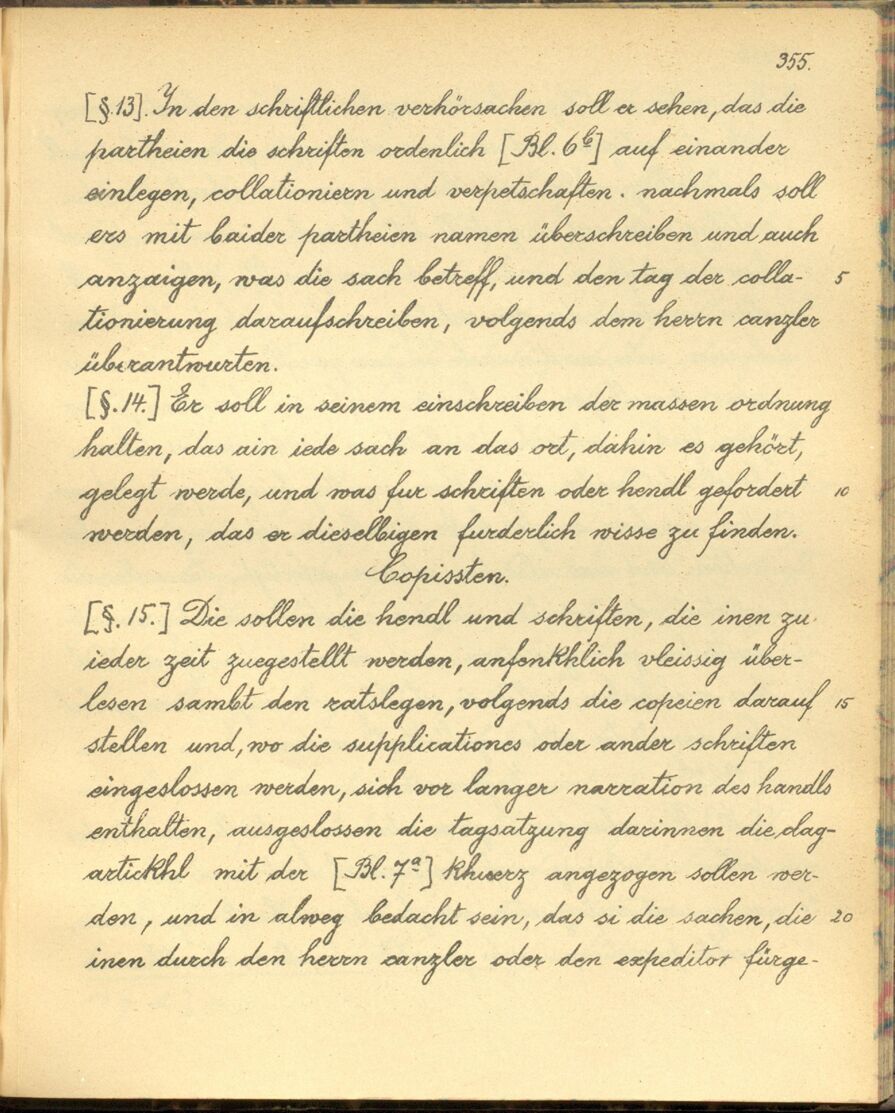 355.
[§.13]. In den schriftlichen verhörsachen soll er sehen, das die
partheien die schriften ordenlich [Bl. 6b] auf einander
einlegen, collationiern und verpetschaften. nachmals soll
ers mit baider partheien namen überschreiben und auch
anzaigen, was die sach betreff, und den tag der colla- 5
tionierung daraufschreiben, volgends dem herrn canzler
überantwurten.
[§.14.] Er soll in seinem einschreiben der massen ordnung
halten, das ain iede sach an das ort, dahin es gehört,
gelegt werde, und was fur schriften oder hendl gefordert 10
werden, das er dieselbigen furderlich wisse zu finden.
Copissten.
[§.15.] Die sollen die hendl und schriften, die inen zu
ieder zeit zuegestellt werden, anfenkhlich vleissig über-
lesen sambt den ratslegen, volgends die copeien darauf 15
stellen und, wo die supplicationes oder ander schriften
eingeslossen werden, sich vor langer narration des handls
enthalten, ausgeslossen die tagsatzung darinnen die clag-
artickhl mit der [Bl. 7a] khuerz angezogen sollen wer-
den, und in alweg bedacht sein, das si die sachen, die 20
inen durch den herrn canzler oder den expeditor fürge-